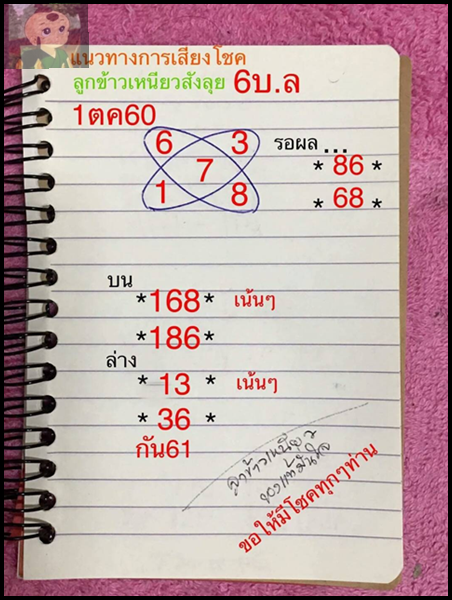 แนวทางการเสี่ยงโชค
ลูกข้าวเหนียวสังลุย 6บ.ล
1ตค60
6 3
7
1 8
รอผล ...
* 86 *
* 68 *
บน
*168* เน้นๆ
*186*
ล่าง
* 13 * เน้นๆ
* 36 *
กัน61
ลูกข้าวเหนียว
ขอให้มีโชคทุกๆท่าน